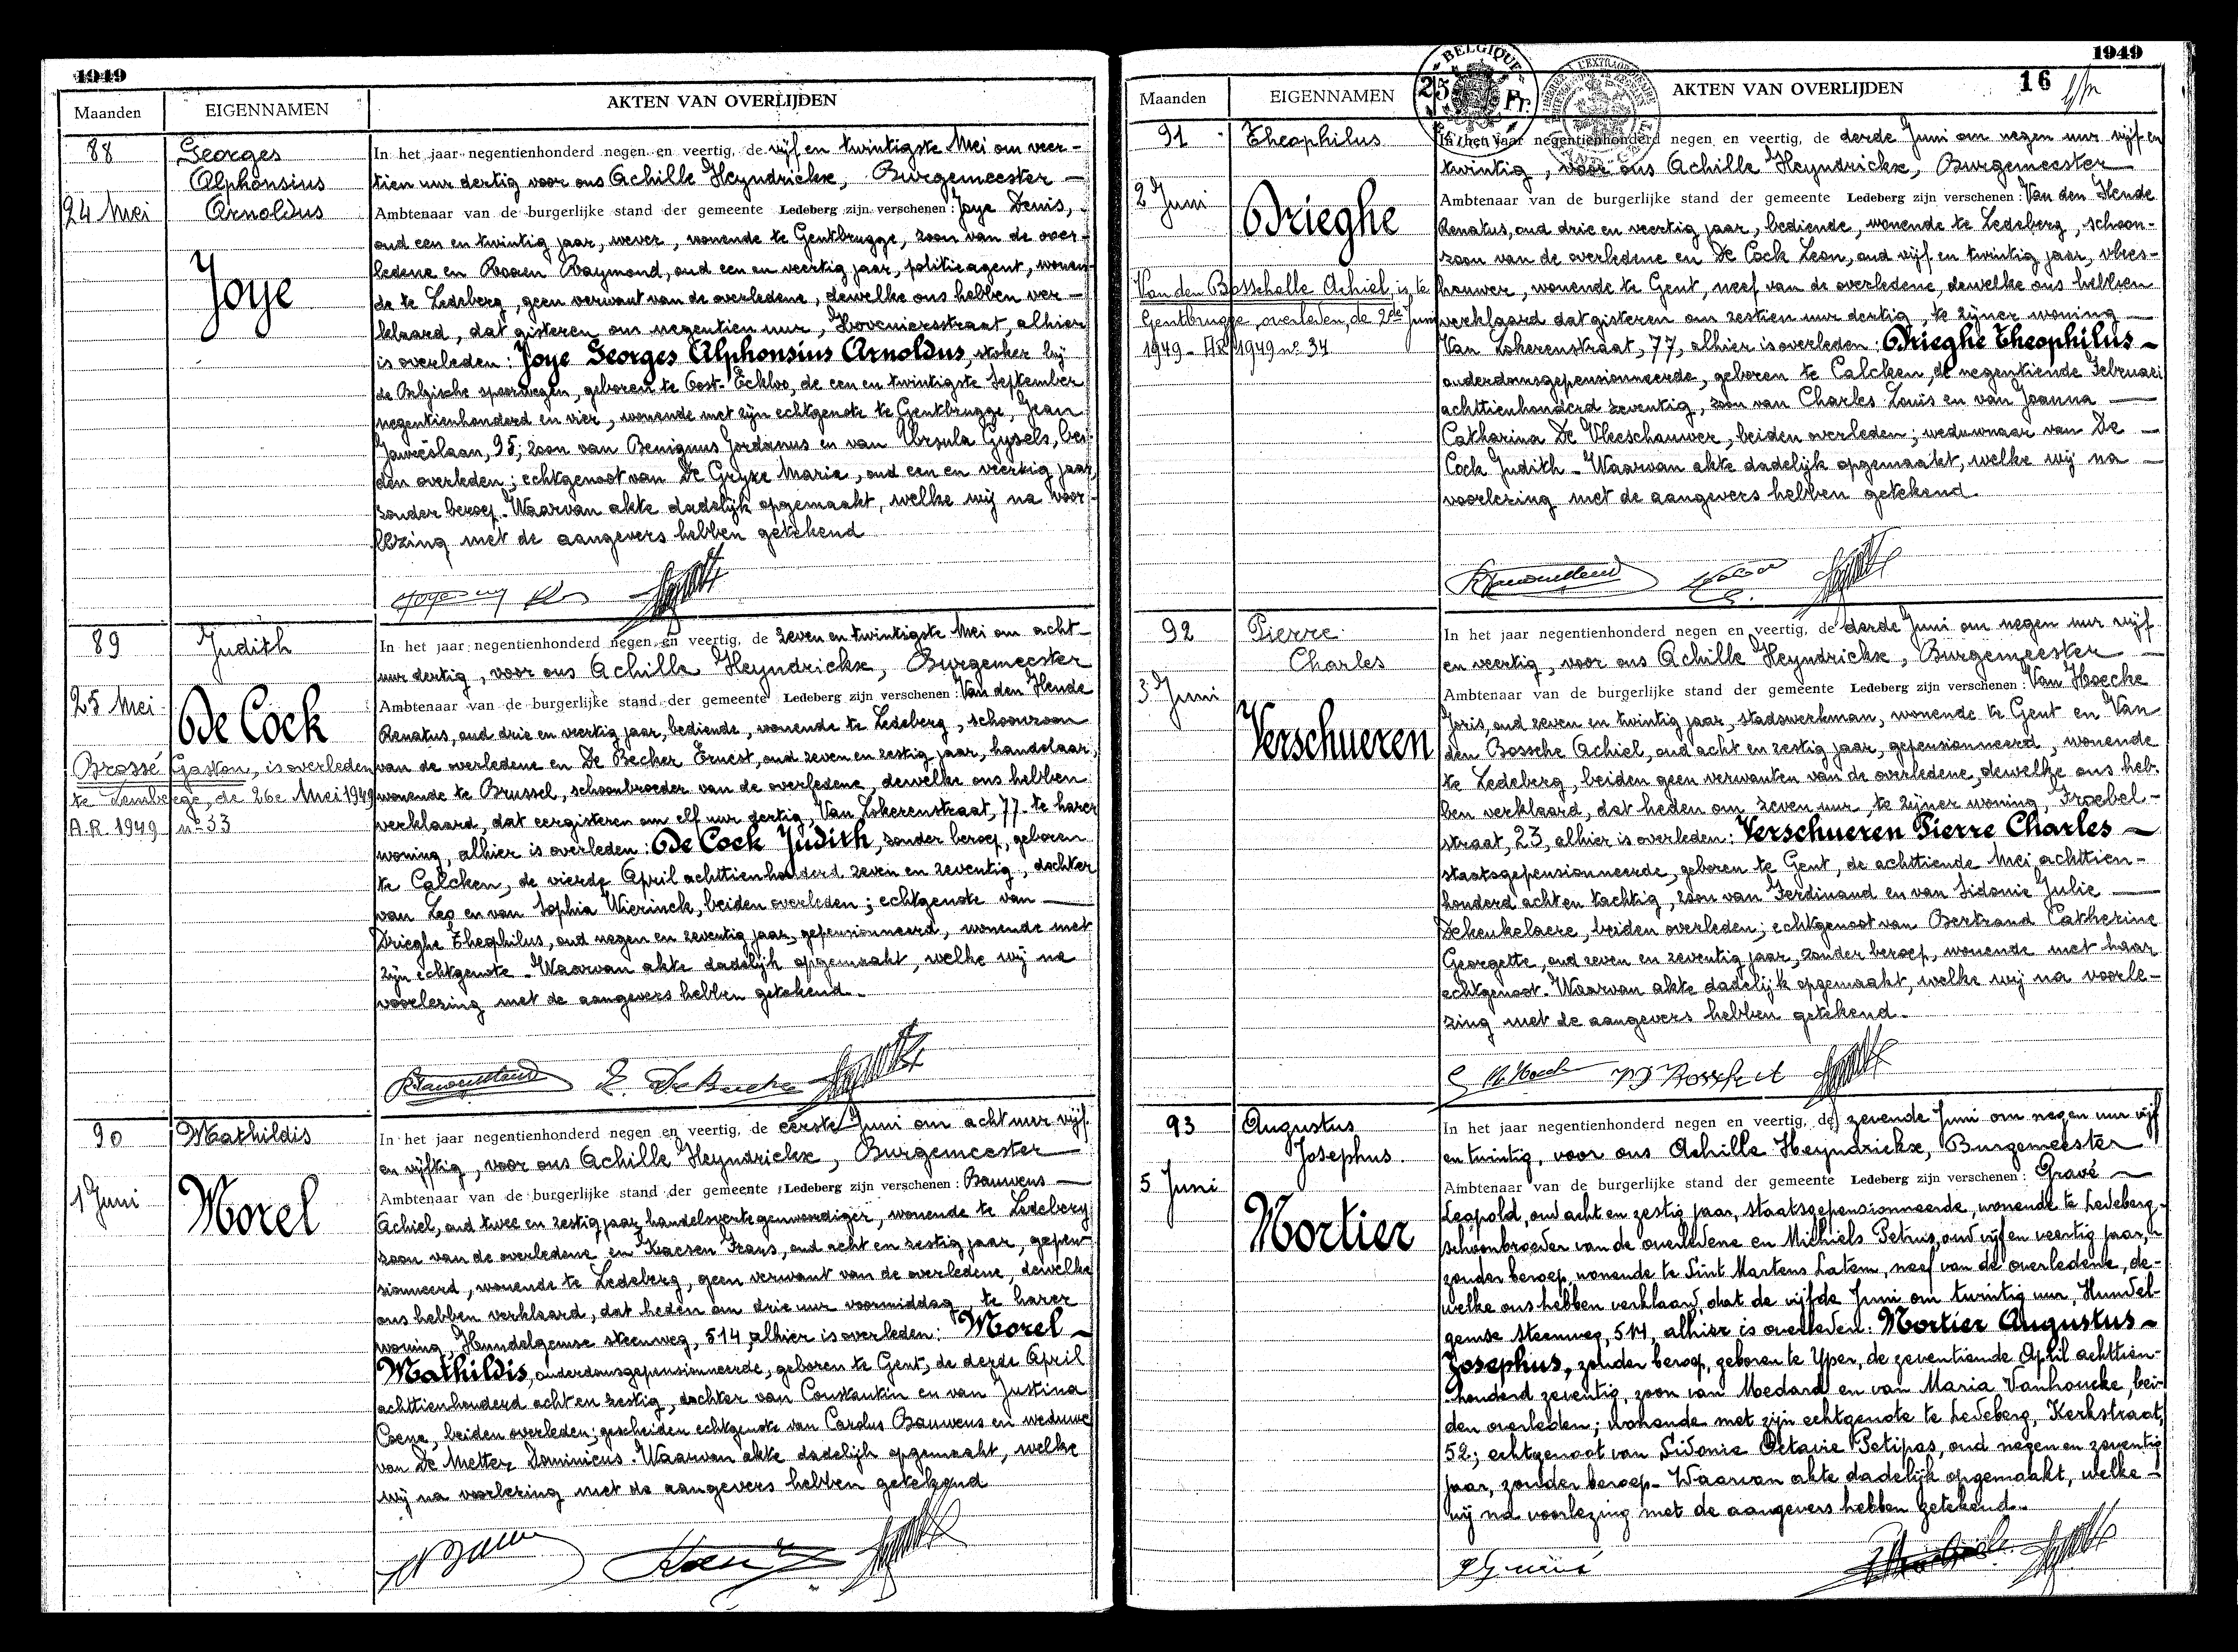 1949
Maanden EIGENNAMEN AKTEN VAN OVERLIJDEN
88
24 Mei
Georges
Alphonsius
Arnoldus
Joye
In het jaar negentienhonderd negen en veertig, de vijf en twintigste Mei om veer-
tien uur dertig voor ons Achille Heyndrickx, Burgemeester —
Ambtenaar van de burgerlijke stand der gemeente Ledeberg zijn verschenen: Joye Denis,
oud een en twintig jaar, wever, wonende te Gentbrugge, zoon van de over-
ledene en Roxen Raymond, oud een en veertig jaar, politieagent, wonen-
de te Ledeberg, geen verwant van de overledene, dewelke ons hebben ver-
klaard, dat gisteren om negentien uur, Hoveniersstraat, alhier
is overleden: Joye Georges Alphonsius Arnoldus, stoker bij
de Belgische spoorwegen, geboren te Oost-Eekloo, de een en twintigste September
negentienhonderd en vier, wonende met zijn echtgenote te Gentbrugge, Jean
Jaurèslaan, 95; zoon van Benignus Jordanus en van Ursula Gysels, bei-
den overleden; echtgenoot van De Gryze Maria, oud een en veertig jaar,
zonder beroep. Waarvan akte dadelijk opgemaakt, welke wij na voor-
lezing met de aangevers hebben getekend
89
25 Mei
Judith
De Cock
Brossé Gaston, is overleden
te Lemberge, de 26e Mei 1949
A.R. 1949 n° 33
In het jaar negentienhonderd negen en veertig, de zeven en twintigste Mei om acht-
uur dertig, voor ons Achille Heyndrickx, Burgemeester
Ambtenaar van de burgerlijke stand der gemeente Ledeberg zijn verschenen: Van den Hende
Renatus, oud drie en veertig jaar, bediende, wonende te Ledeberg, schoonzoon
van de overledene en De Becker Ernest, oud zeven en zestig jaar, handelaar,
wonende te Brussel, schoonbroeder van de overledene, dewelke ons hebben
verklaard, dat eergisteren om elf uur dertig, Van Lokerenstraat, 77 te harer
woning, alhier is overleden: De Cock Judith, zonder beroep, geboren
te Calcken, de vierde April achttienhonderd zeven en zeventig, dochter
van Leo en van Sophia Wierinck, beiden overleden; echtgenote van —
Drieghe Theophilus, oud negen en zeventig jaar, gepensionneerd, wonende met
zijn echtgenote. Waarvan akte dadelijk opgemaakt, welke wij na
voorlezing met de aangevers hebben getekend.
90
1 Juni
Mathildis
Morel
In het jaar negentienhonderd negen en veertig, de eerste Juni om acht uur vijf
en vijftig, voor ons Achille Heyndrickx, Burgemeester
Ambtenaar van de burgerlijke stand der gemeente Ledeberg zijn verschenen: Bauwens —
Achiel, oud twee en zestig jaar, handelsvertegenwoordiger, wonende te Ledeberg
zoon van de overledene en Kaesen Frans, oud acht en zestig jaar, gepen-
sionneerd, wonende te Ledeberg, geen verwant van de overledene, dewelke
ons hebben verklaard, dat heden om drie uur voormiddag, te harer
woning, Hundelgemse steenweg, 514, alhier is overleden: Morel —
Mathildis, ouderdomsgepensionneerde, geboren te Gent, de derde April
achttienhonderd acht en zestig, dochter van Constantin en van Justina
Coene, beiden overleden; gescheiden echtgenote van Carolus Bauwens en weduwe
van De Metter Dominicus. Waarvan akte dadelijk opgemaakt, welke
wij na voorlezing met de aangevers hebben getekend
1949
Maanden EIGENNAMEN AKTEN VAN OVERLIJDEN 16
BELGIQUE
25 Fr.
91
2 Juni
Theophilus
Drieghe
Van den Bosschelle Achiel, is te
Gentbrugge, overleden, de 2de Juni
1949 - AR 1949 n° 34
In het jaar negentienhonderd negen en veertig, de derde Juni om negen uur vijf en
twintig, voor ons Achille Heyndrickx, Burgemeester
Ambtenaar van de burgerlijke stand der gemeente Ledeberg zijn verschenen: Van den Hende
Renatus, oud drie en veertig jaar, bediende, wonende te Ledeberg, schoon-
zoon van de overledene en De Cock Leon, oud vijf en twintig jaar, vlees-
houwer, wonende te Gent, neef van de overledene, dewelke ons hebben
verklaard dat gisteren om zestien uur dertig, te zijner woning —
Van Lokerenstraat, 77, alhier is overleden: Drieghe Theophilus —
ouderdomsgepensionneerde, geboren te Calcken, de negentiende Februari
achttienhonderd zeventig, zoon van Charles Louis en van Joanna —
Catharina De Vleeschauwer, beiden overleden; weduwnaar van De —
Cock Judith - Waarvan akte dadelijk opgemaakt, welke wij na —
voorlezing met de aangevers hebben getekend.
92
3 Juni
Pierre
Charles
Verschueren
In het jaar negentienhonderd negen en veertig, de derde Juni om negen uur vijf
en veertig, voor ons Achille Heyndrickx, Burgemeester —
Ambtenaar van de burgerlijke stand der gemeente Ledeberg zijn verschenen: Van Hoecke
Joris, oud zeven en twintig jaar, stadswerkman, wonende te Gent en Van
den Bossche Achiel, oud acht en zestig jaar, gepensionneerd, wonende
te Ledeberg, beiden geen verwanten van de overledene, dewelke ons heb-
ben verklaard, dat heden om zeven uur, te zijner woning, Froebel-
straat, 23, alhier is overleden: Verschueren Pierre Charles —
staatsgepensionneerde, geboren te Gent, de achttiende Mei achttien-
honderd acht en tachtig, zoon van Ferdinand en van Sidonie Julie —
Dekeukelaere, beiden overleden; echtgenoot van Bertrand Catherine
Georgette, oud zeven en zeventig jaar, zonder beroep, wonende met haar
echtgenoot. Waarvan akte dadelijk opgemaakt, welke wij na voorle-
zing met de aangevers hebben getekend.
93
5 Juni
Augustus
Josephus.
Mortier
In het jaar negentienhonderd negen en veertig, de zevende Juni om negen uur vijf
en twintig, voor ons Achille Heyndrickx, Burgemeester
Ambtenaar van de burgerlijke stand der gemeente Ledeberg zijn verschenen: Gravé —
Leopold, oud acht en zestig jaar, staatsgepensionneerde, wonende te Ledeberg,
schoonbroeder van de overledene en Michiels Petrus, oud vijf en veertig jaar,
zonder beroep, wonende te Sint Martens Latem, neef van de overledene, de-
welke ons hebben verklaard, dat de vijfde Juni om twintig uur, Hundel-
gemse steenweg, 514, alhier is overleden: Mortier Augustus —
Josephus, zonder beroep, geboren te Yper, de zeventiende April achttien-
honderd zeventig, zoon van Medard en van Maria Vanhoucke, bei-
den overleden; wonende met zijn echtgenote te Ledeberg, Kerkstraat,
52; echtgenoot van Sidonie Octavie Petipas, oud negen en zeventig
jaar, zonder beroep. Waarvan akte dadelijk opgemaakt, welke —
wij na voorlezing met de aangevers hebben getekend.